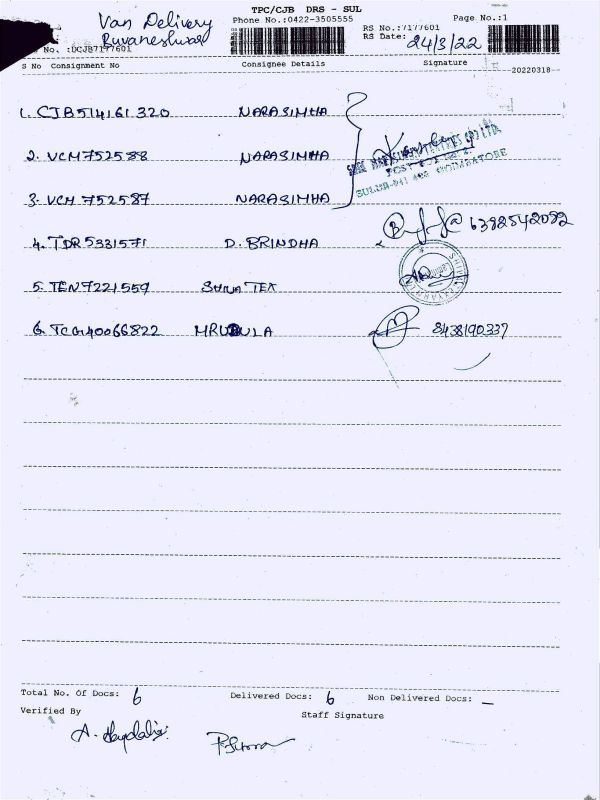 TPC/CJB DRS - SUL
Van Delivery
Phone No.:0422-3505555
Page No.:1
RS No.:7177601
RS Date: 24/3/22
No. :DCJB7177601
S No Consignment No Consignee Details Signature
20220318
1. CJB514161320 NARASIMHA
2. VCM752588 NARASIMHA
3. VCM 752587 NARASIMHA
POST BOX NO 2.
SULUR-641 402 COIMBATORE
4. TDR5331571 D. BRINDHA 6382542092
5. TEN7221559 SHIVA TEX
6. TCG140066822 MRUDULA 8438190337
Total No. Of Docs: 6 Delivered Docs: 6 Non Delivered Docs: —
Verified By Staff Signature